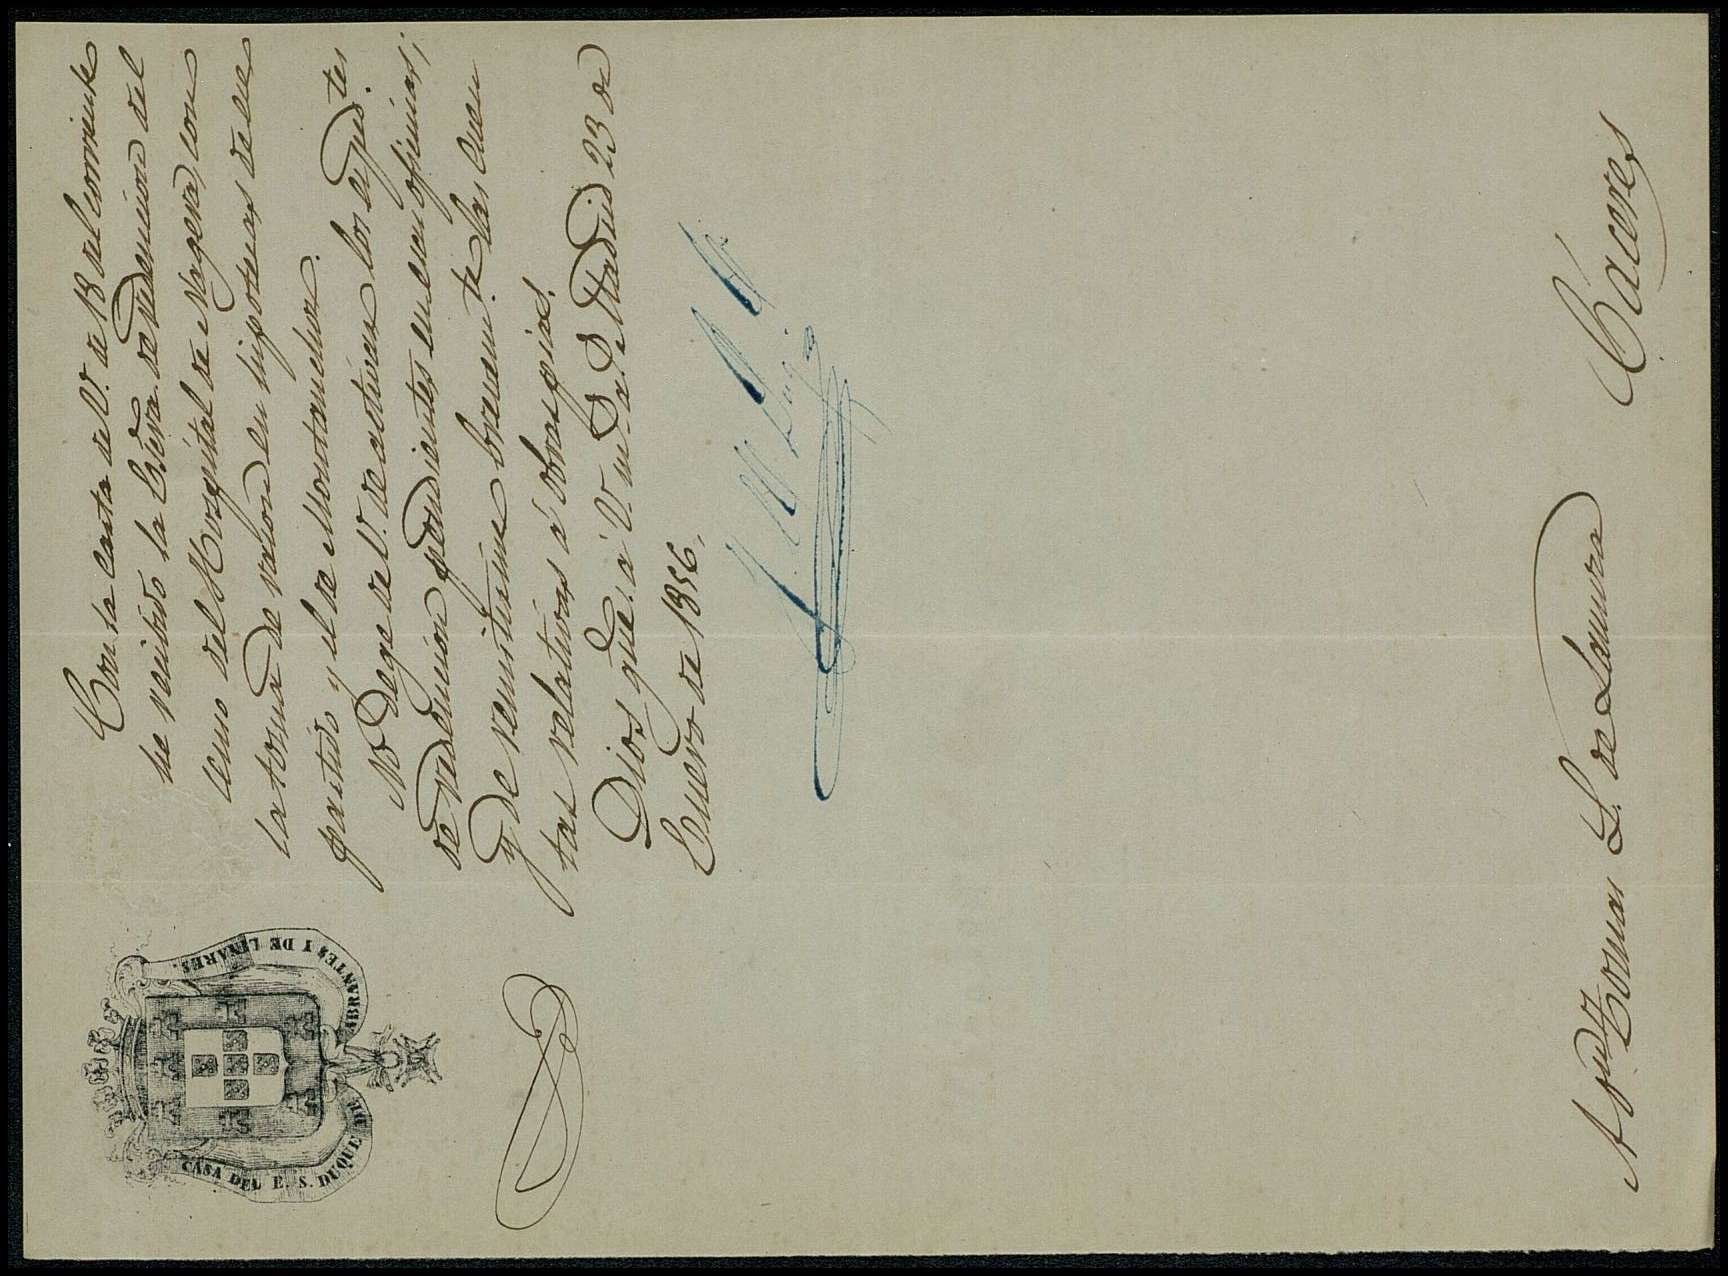 CASA DEL E. S. DUQUE DE ABRANTES Y DE LINARES.
Con la carta de V. de 18 del corriente
he recibido la Escra. de redencion del
censo del Hospital de Nagera, con
la toma de razon en hipotecas de ese
partido y el de Montanchez.
No deje de V. de activar los espedtes
de redencion pendientes en esas oficinas;
y de remitirme brevemte. las cuen
tas relativas á obras pias.
Dios gue. á V. ms. as. Madrid 23 de
Enero de 1856.
Admor. Tomas L. de Lamura Cáceres